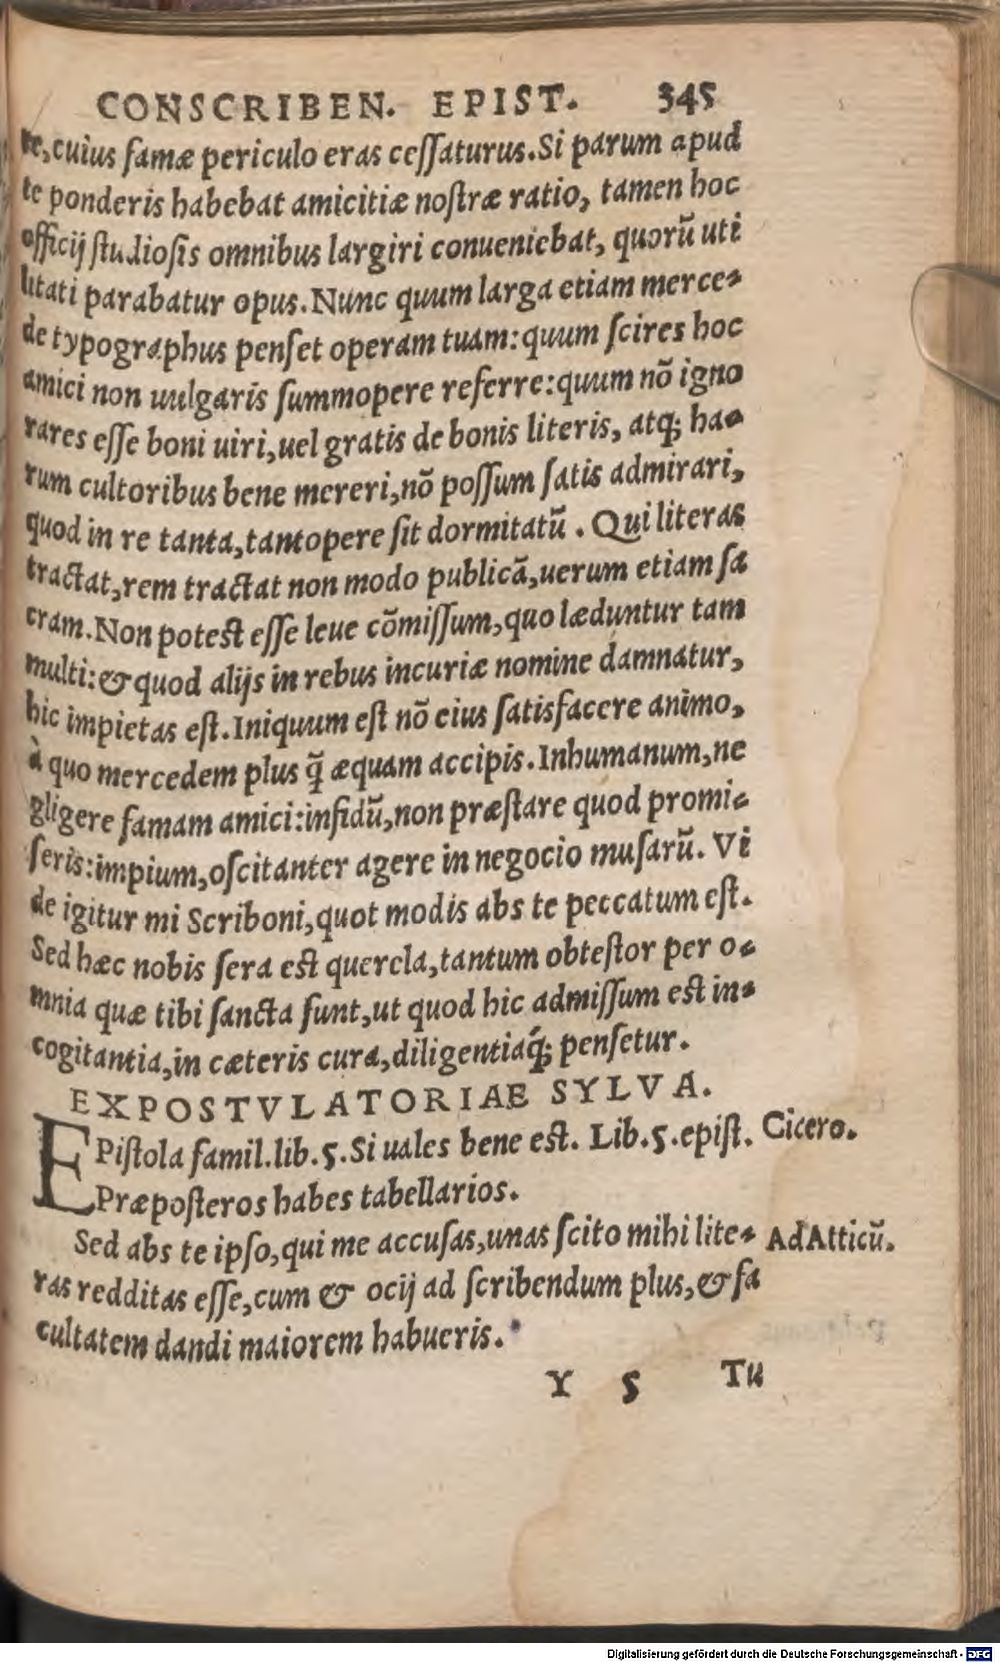 CONSCRIBEN. EPIST. 345
te,cuius famæ periculo eras ceſſaturus.Si parum apud
te ponderis habebat amicitiæ noſtræ ratio, tamen hoc
officij ſtudioſis omnibus largiri conueniebat, quorũ uti
litati parabatur opus.Nunc quum larga etiam merce-
de typographus penſet operam tuam:quum ſcires hoc
amici non uulgaris ſummopere referre:quum nõ igno
rares eſſe boni uiri,uel gratis de bonis literis, atq; ha-
rum cultoribus bene mereri,nõ poſſum ſatis admirari,
quod in re tanta,tantopere ſit dormitatũ . Qui literas
tractat,rem tractat non modo publicã,uerum etiam ſa
cram.Non poteſt eſſe leue cõmiſſum,quo læduntur tam
multi:& quod alijs in rebus incuriæ nomine damnatur,
hic impietas eſt.Iniquum eſt nõ eius ſatisfacere animo,
à quo mercedem plus q̃ æquam accipis.Inhumanum,ne
gligere famam amici:infidũ,non præſtare quod promi-
ſeris:impium,oſcitanter agere in negocio muſarũ. Vi
de igitur mi Scriboni,quot modis abs te peccatum eſt.
Sed hæc nobis ſera eſt querela,tantum obteſtor per o-
mnia quæ tibi ſancta ſunt,ut quod hic admiſſum eſt in-
cogitantia,in cæteris cura,diligentiáq; penſetur.
EXPOSTVLATORIAE SYLVA.
EPiſtola famil.lib.5.Si uales bene eſt. Lib.5.epiſt. Cicero.
Præpoſteros habes tabellarios.
Sed abs te ipſo,qui me accuſas,unas ſcito mihi lite- Ad Atticũ.
ras redditas eſſe,cum & ocij ad ſcribendum plus,& fa
cultatem dandi maiorem habueris.
Y 5 Tu
Digitalisierung gefördert durch die Deutsche Forschungsgemeinschaft - DFG